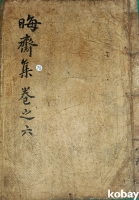 晦齋集卷之六
kobay